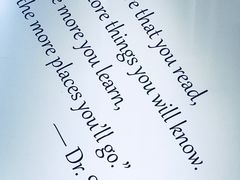 e that you read,
ore things you will know.
e more you learn,
the more places you'll go.”
— Dr.